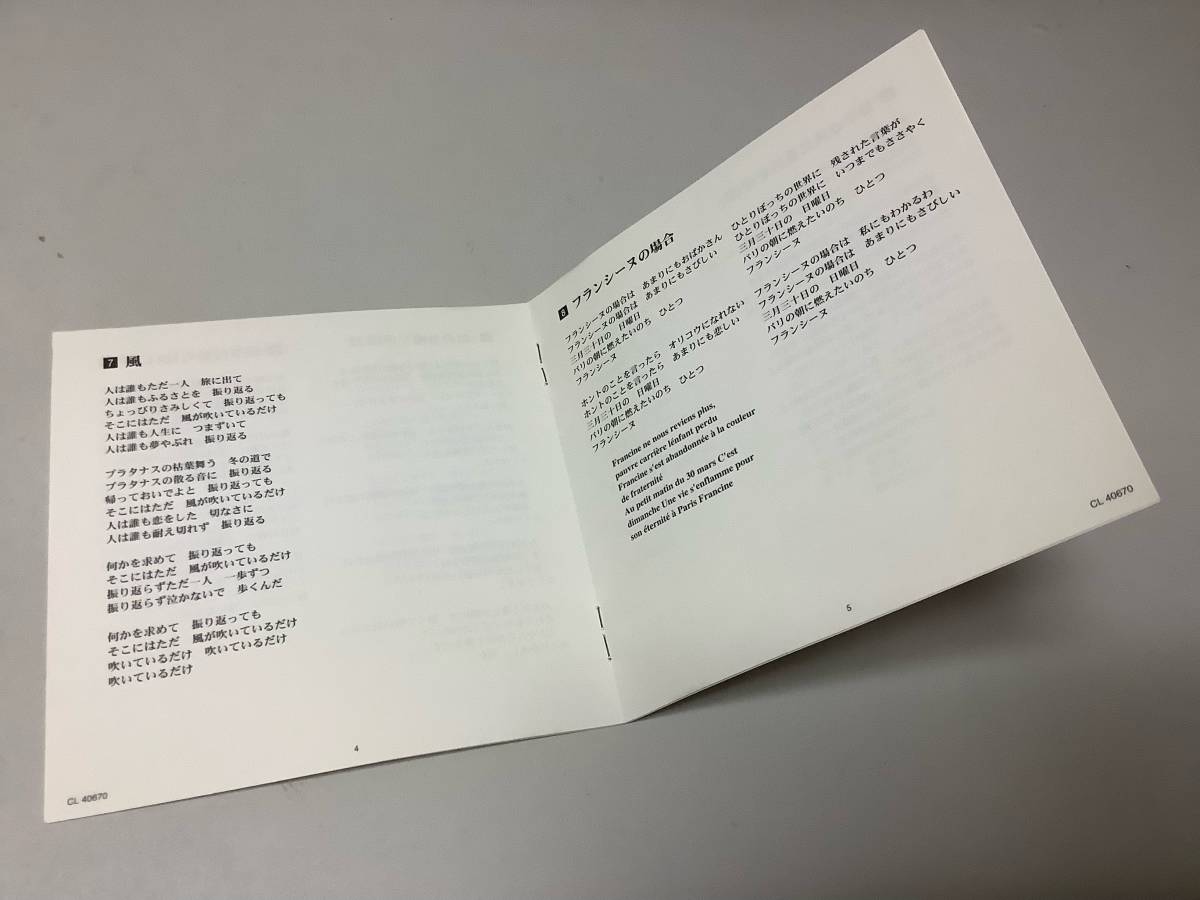 7 風
人は誰もただ一人　旅に出て
人は誰もふるさとを　振り返る
ちょっぴりさみしくて　振り返っても
そこにはただ　風が吹いているだけ
人は誰も人生に　つまずいて
人は誰も夢やぶれ　振り返る
プラタナスの枯葉舞う　冬の道で
プラタナスの散る音に　振り返る
帰っておいでよと　振り返っても
そこにはただ　風が吹いているだけ
人は誰も恋をした　切なさに
人は誰も耐え切れず　振り返る
何かを求めて　振り返っても
そこにはただ　風が吹いているだけ
振り返らずただ一人　一歩ずつ
振り返らず泣かないで　歩くんだ
何かを求めて　振り返っても
そこにはただ　風が吹いているだけ
吹いているだけ　吹いているだけ
吹いているだけ
4
CL 40670
8 フランシーヌの場合
フランシーヌの場合は　あまりにもおばかさん
フランシーヌの場合は　あまりにもさびしい
三月三十日の　日曜日
パリの朝に燃えたいのち　ひとつ
フランシーヌ
ホントのことを言ったら　オリコウになれない
ホントのことを言ったら　あまりにも悲しい
三月三十日の　日曜日
パリの朝に燃えたいのち　ひとつ
フランシーヌ
Francine ne nous reviens plus,
pauvre carrière lénfant perdu
Francine s'est abandonnée à la couleur
de fraternité
Au petit matin du 30 mars C'est
dimanche Une vie s'enflamme pour
son éternité à Paris Francine
ひとりぼっちの世界に　残された言葉が
ひとりぼっちの世界に　いつまでもささやく
三月三十日の　日曜日
パリの朝に燃えたいのち　ひとつ
フランシーヌ
フランシーヌの場合は　私にもわかるわ
フランシーヌの場合は　あまりにもさびしい
三月三十日の　日曜日
パリの朝に燃えたいのち　ひとつ
フランシーヌ
5
CL 40670